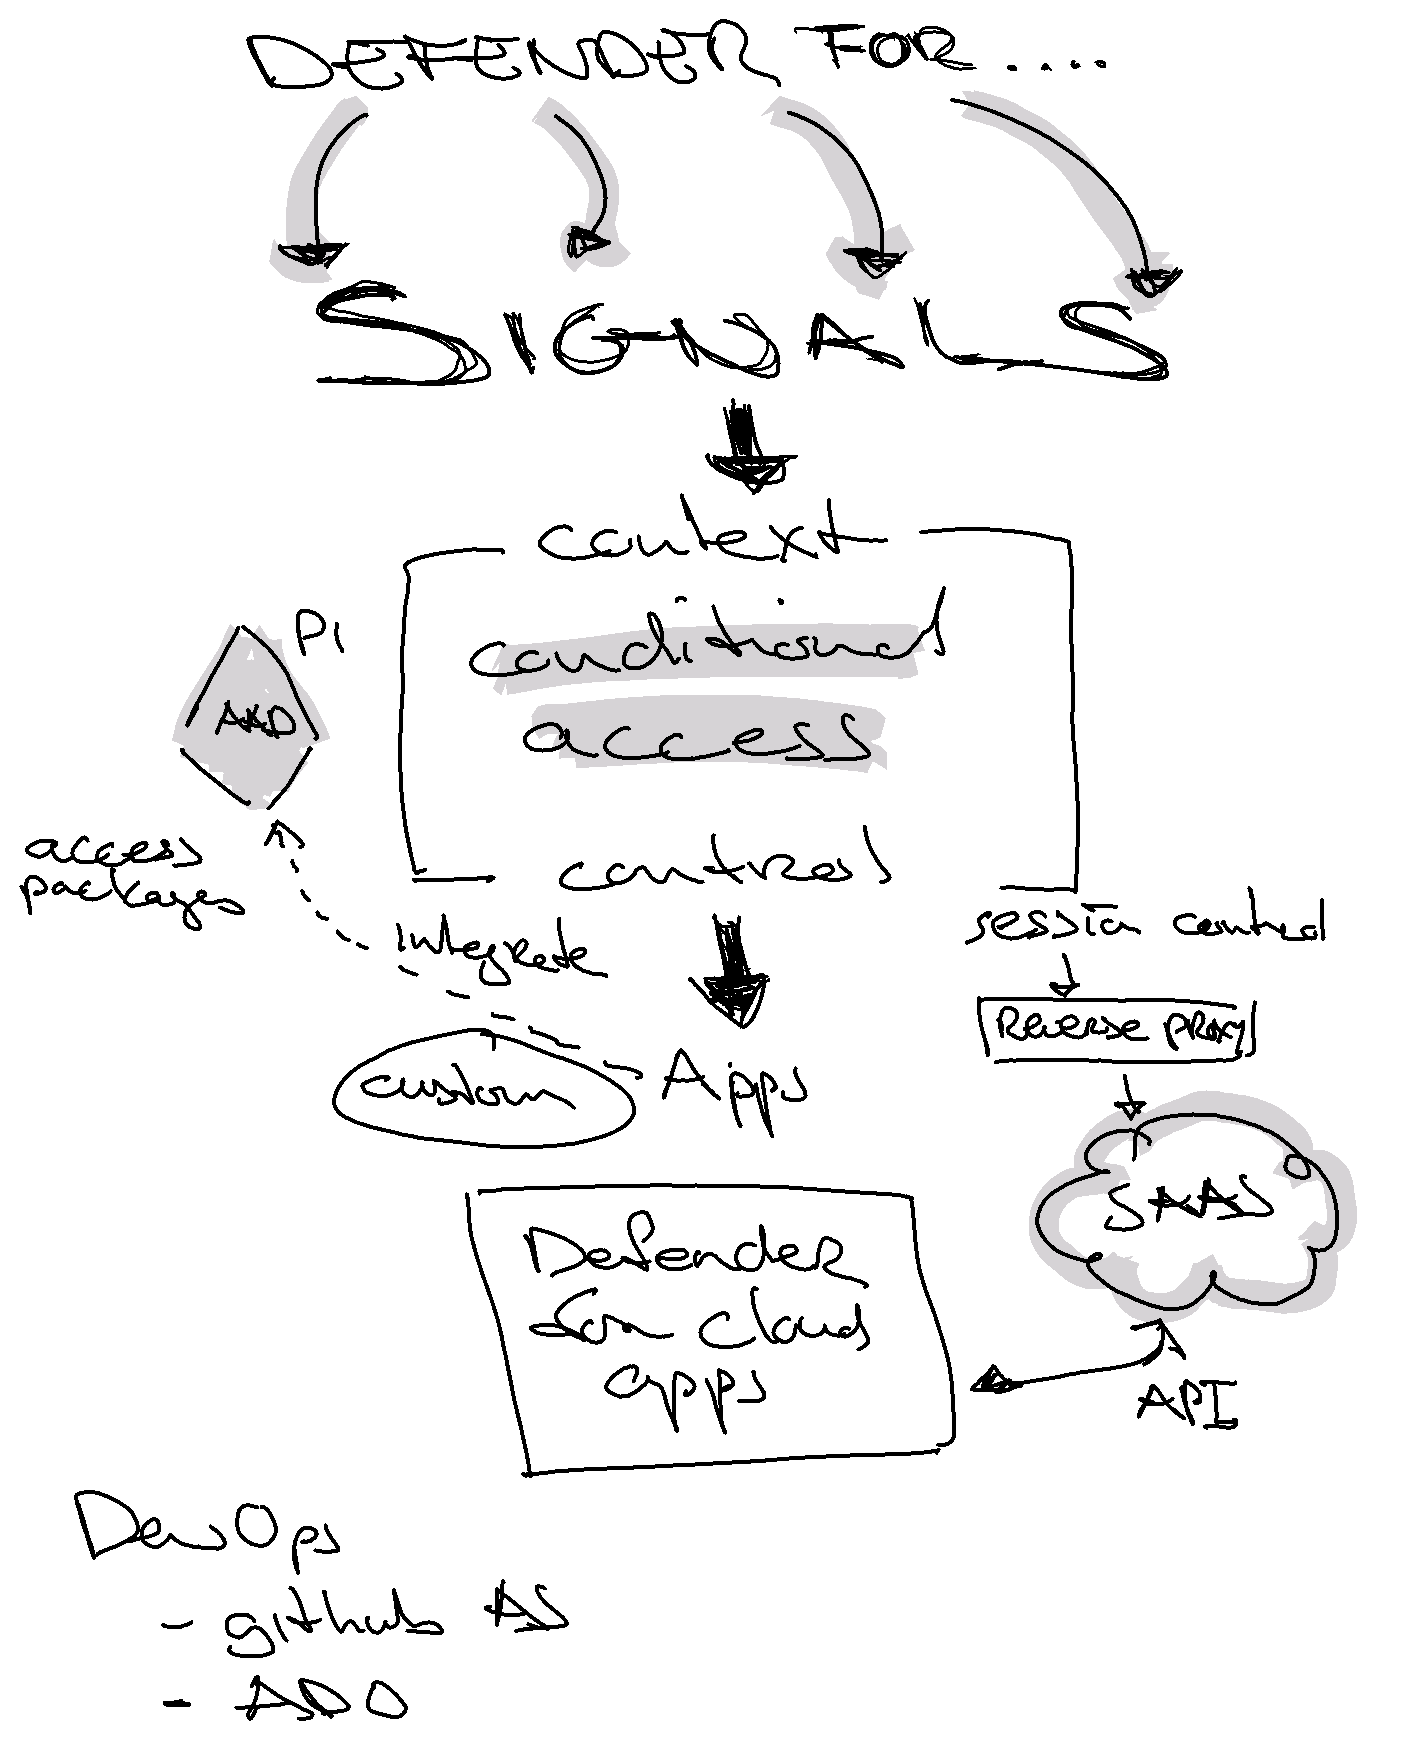 DEFENDER FOR.....
SIGNALS
context
conditional
access
control
P1
AAD
access
packages
integrate
session control
Reverse proxy
custom
Apps
SAAS
Defender
for cloud
apps
API
DevOps
- github AS
- ADO